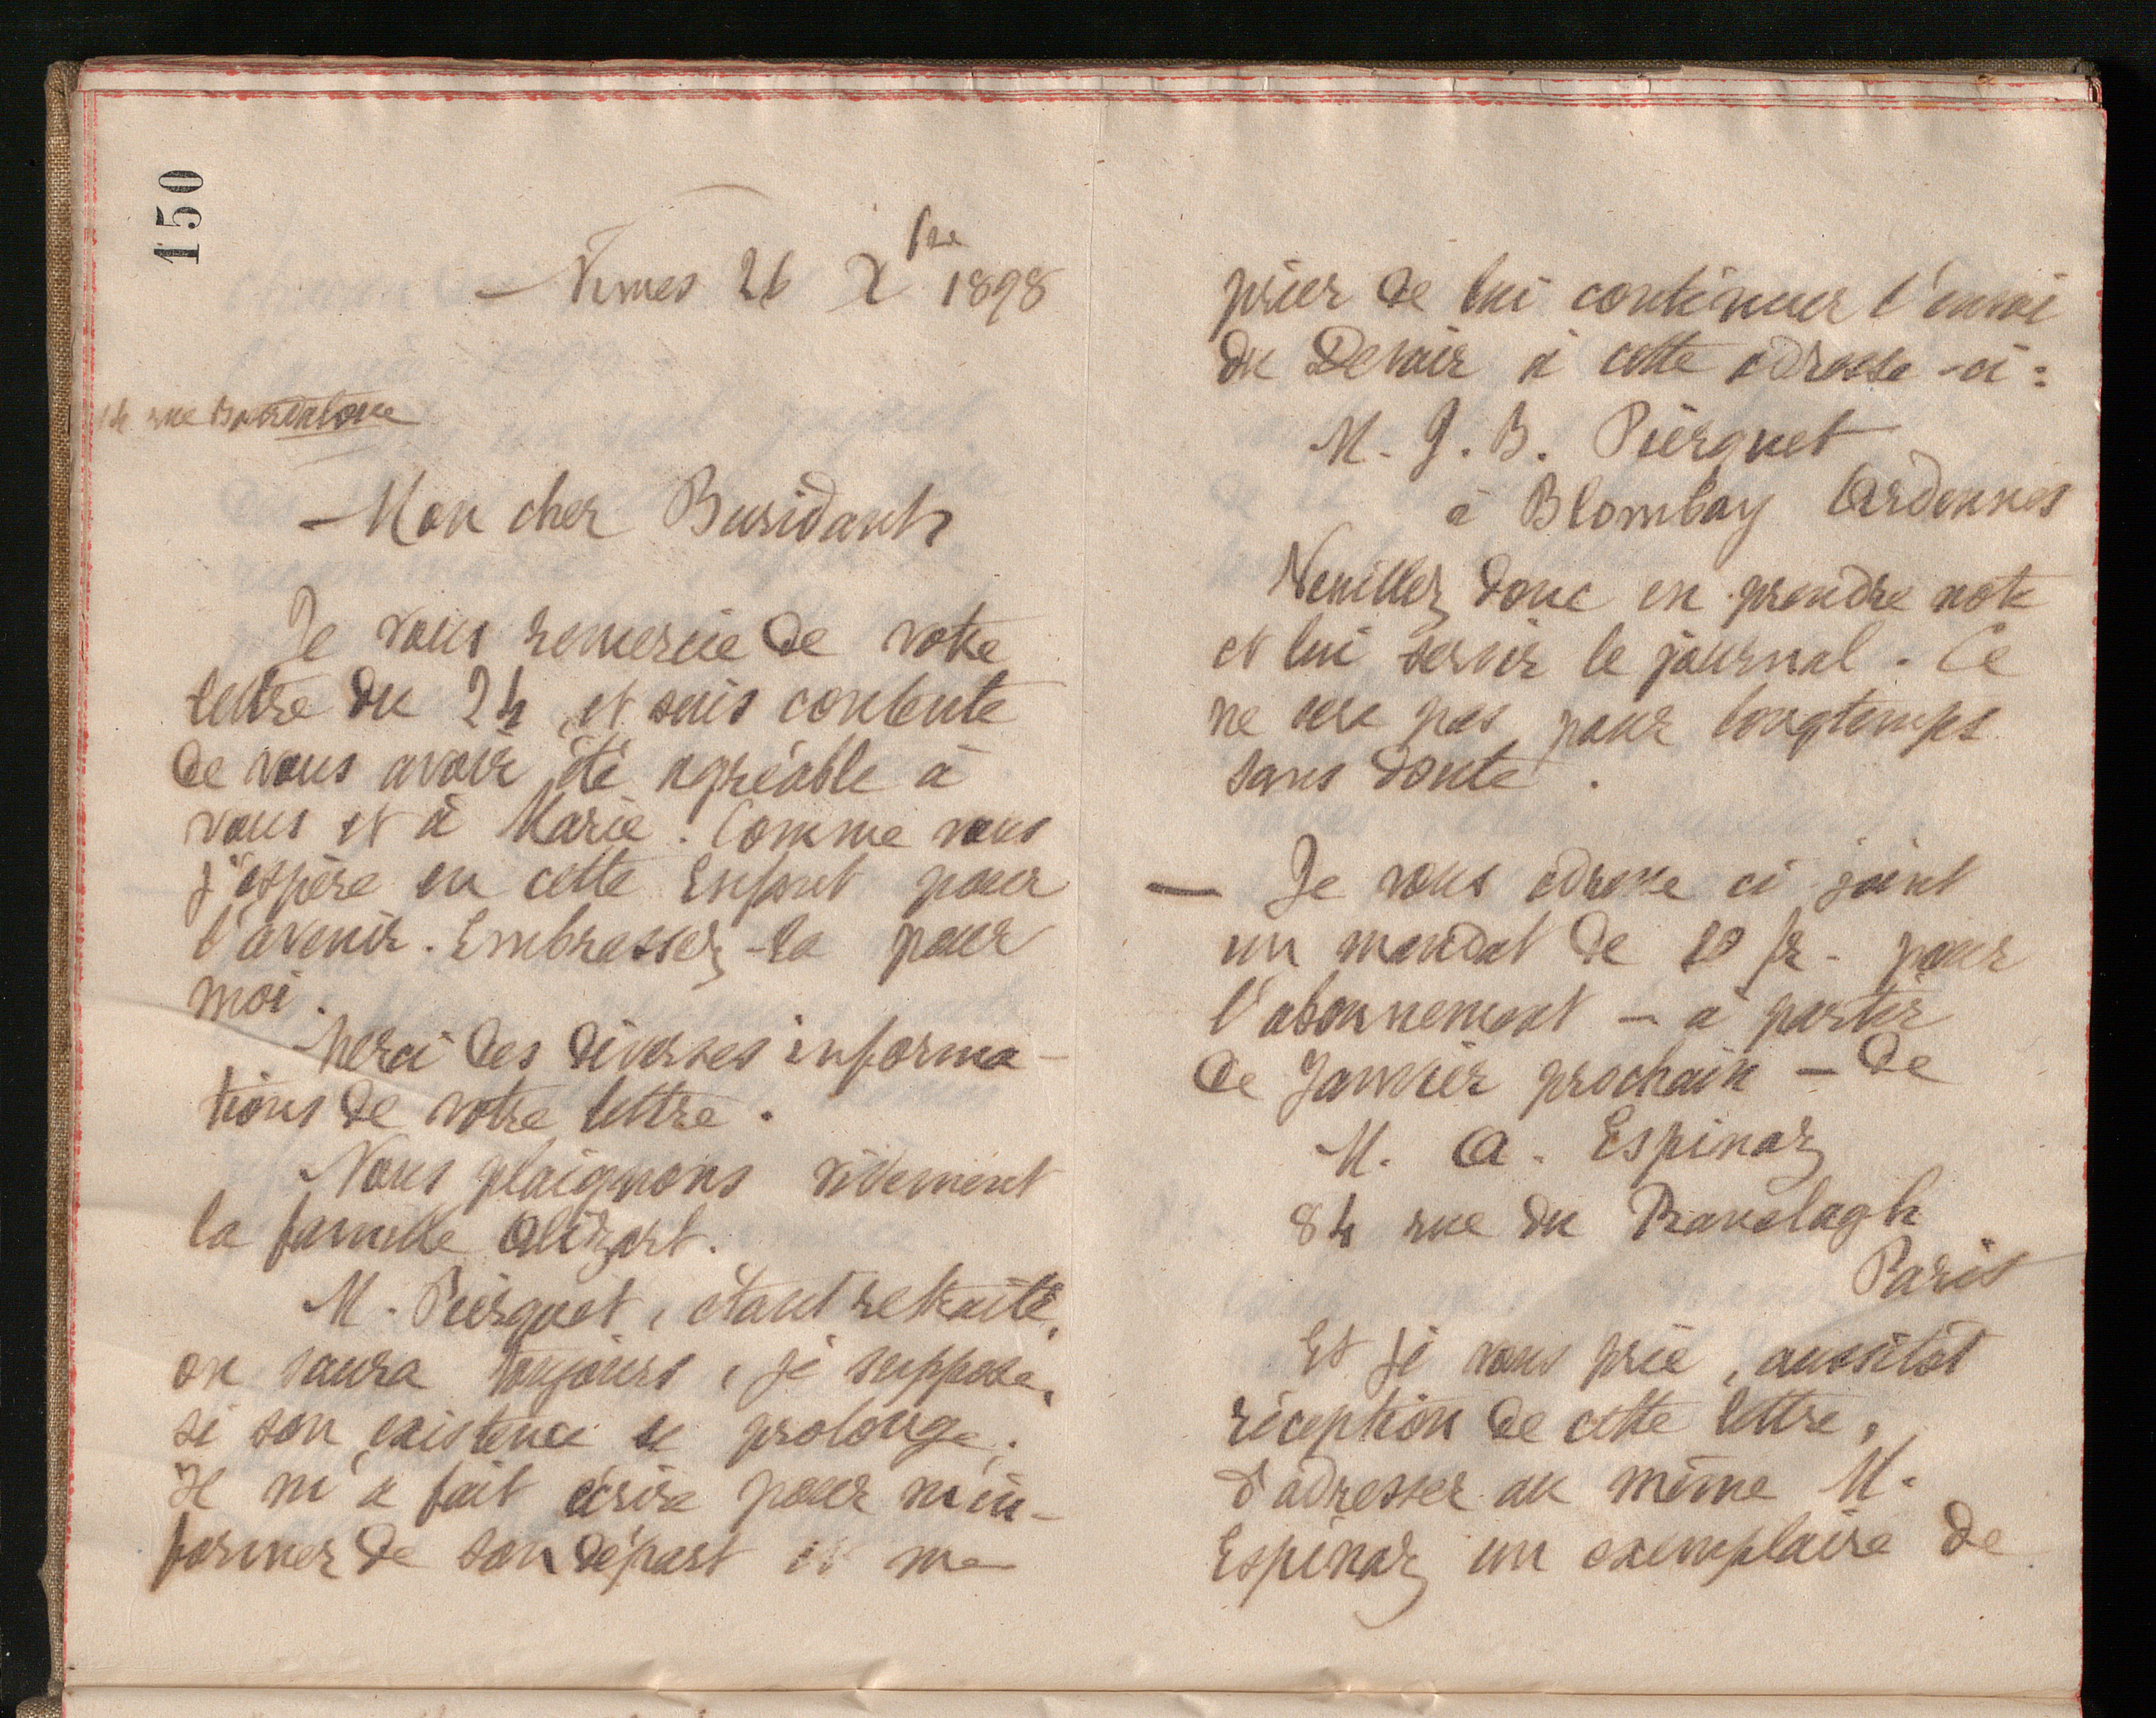 150
Nimes 26 Xbre 1898
14 rue Bourdaloue
Mon cher Buridant,
Je vous remercie de votre
lettre du 24, et suis contente
de vous avoir été agréable à
vous et à Marie. Comme vous
j'espère en cette Enfant pour
l'avenir. Embrassez-la pour
moi.
Merci des diverses informa-
tions de votre lettre.
Nous plaignons vivement
la famille Alizart.
M. Pierquet, étant retraité,
on saura toujours, je suppose,
si son existence se prolonge.
Il m'a fait écrire pour m'in-
former de son départ et me
prier de lui continuer l'envoi
du Devoir à cette adresse-ci :
M. J. B. Pierquet
à Blombay Ardennes
Veuillez donc en prendre note
et lui servir le journal. Ce
ne sera pas pour longtemps
sans doute.
— Je vous adresse ci joint
un mandat de 10 fr. pour
l'abonnement — à partir
de Janvier prochain — de
M. A. Espinaz
84 rue du Ranelagh
Paris
Et je vous prie, aussitôt
réception de cette lettre,
d'adresser au même M.
Espinaz un exemplaire de